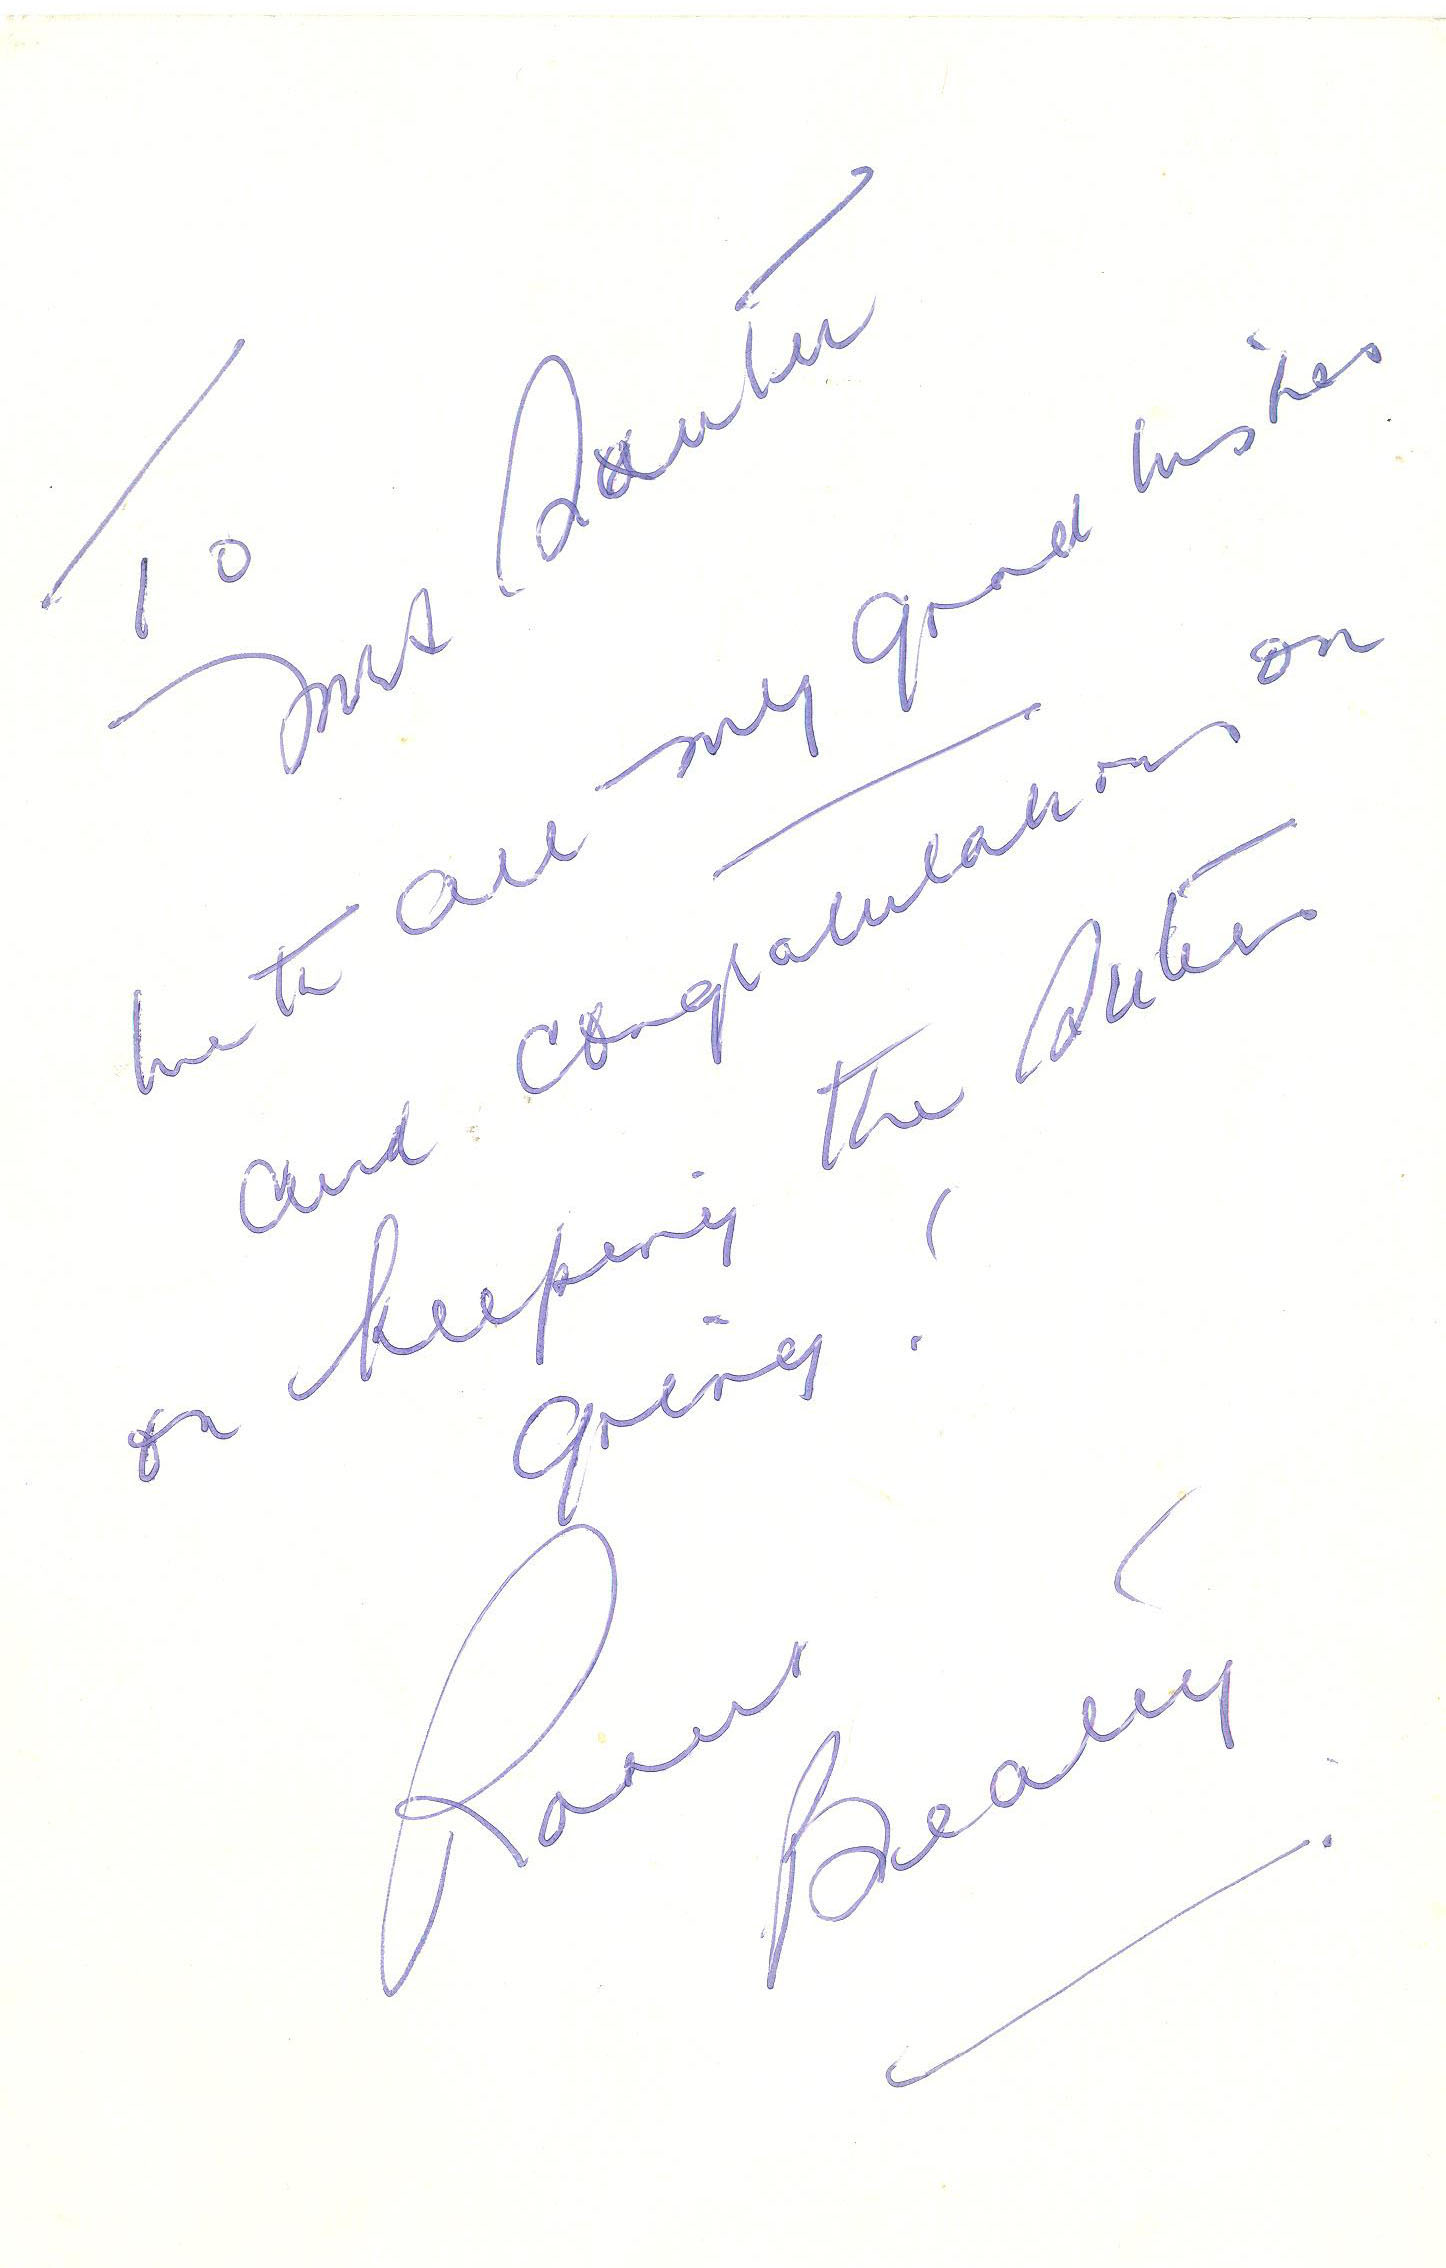 To
Mrs Sauter
with all my good wishes
and congratulations on
on keeping the
going!
Beatty